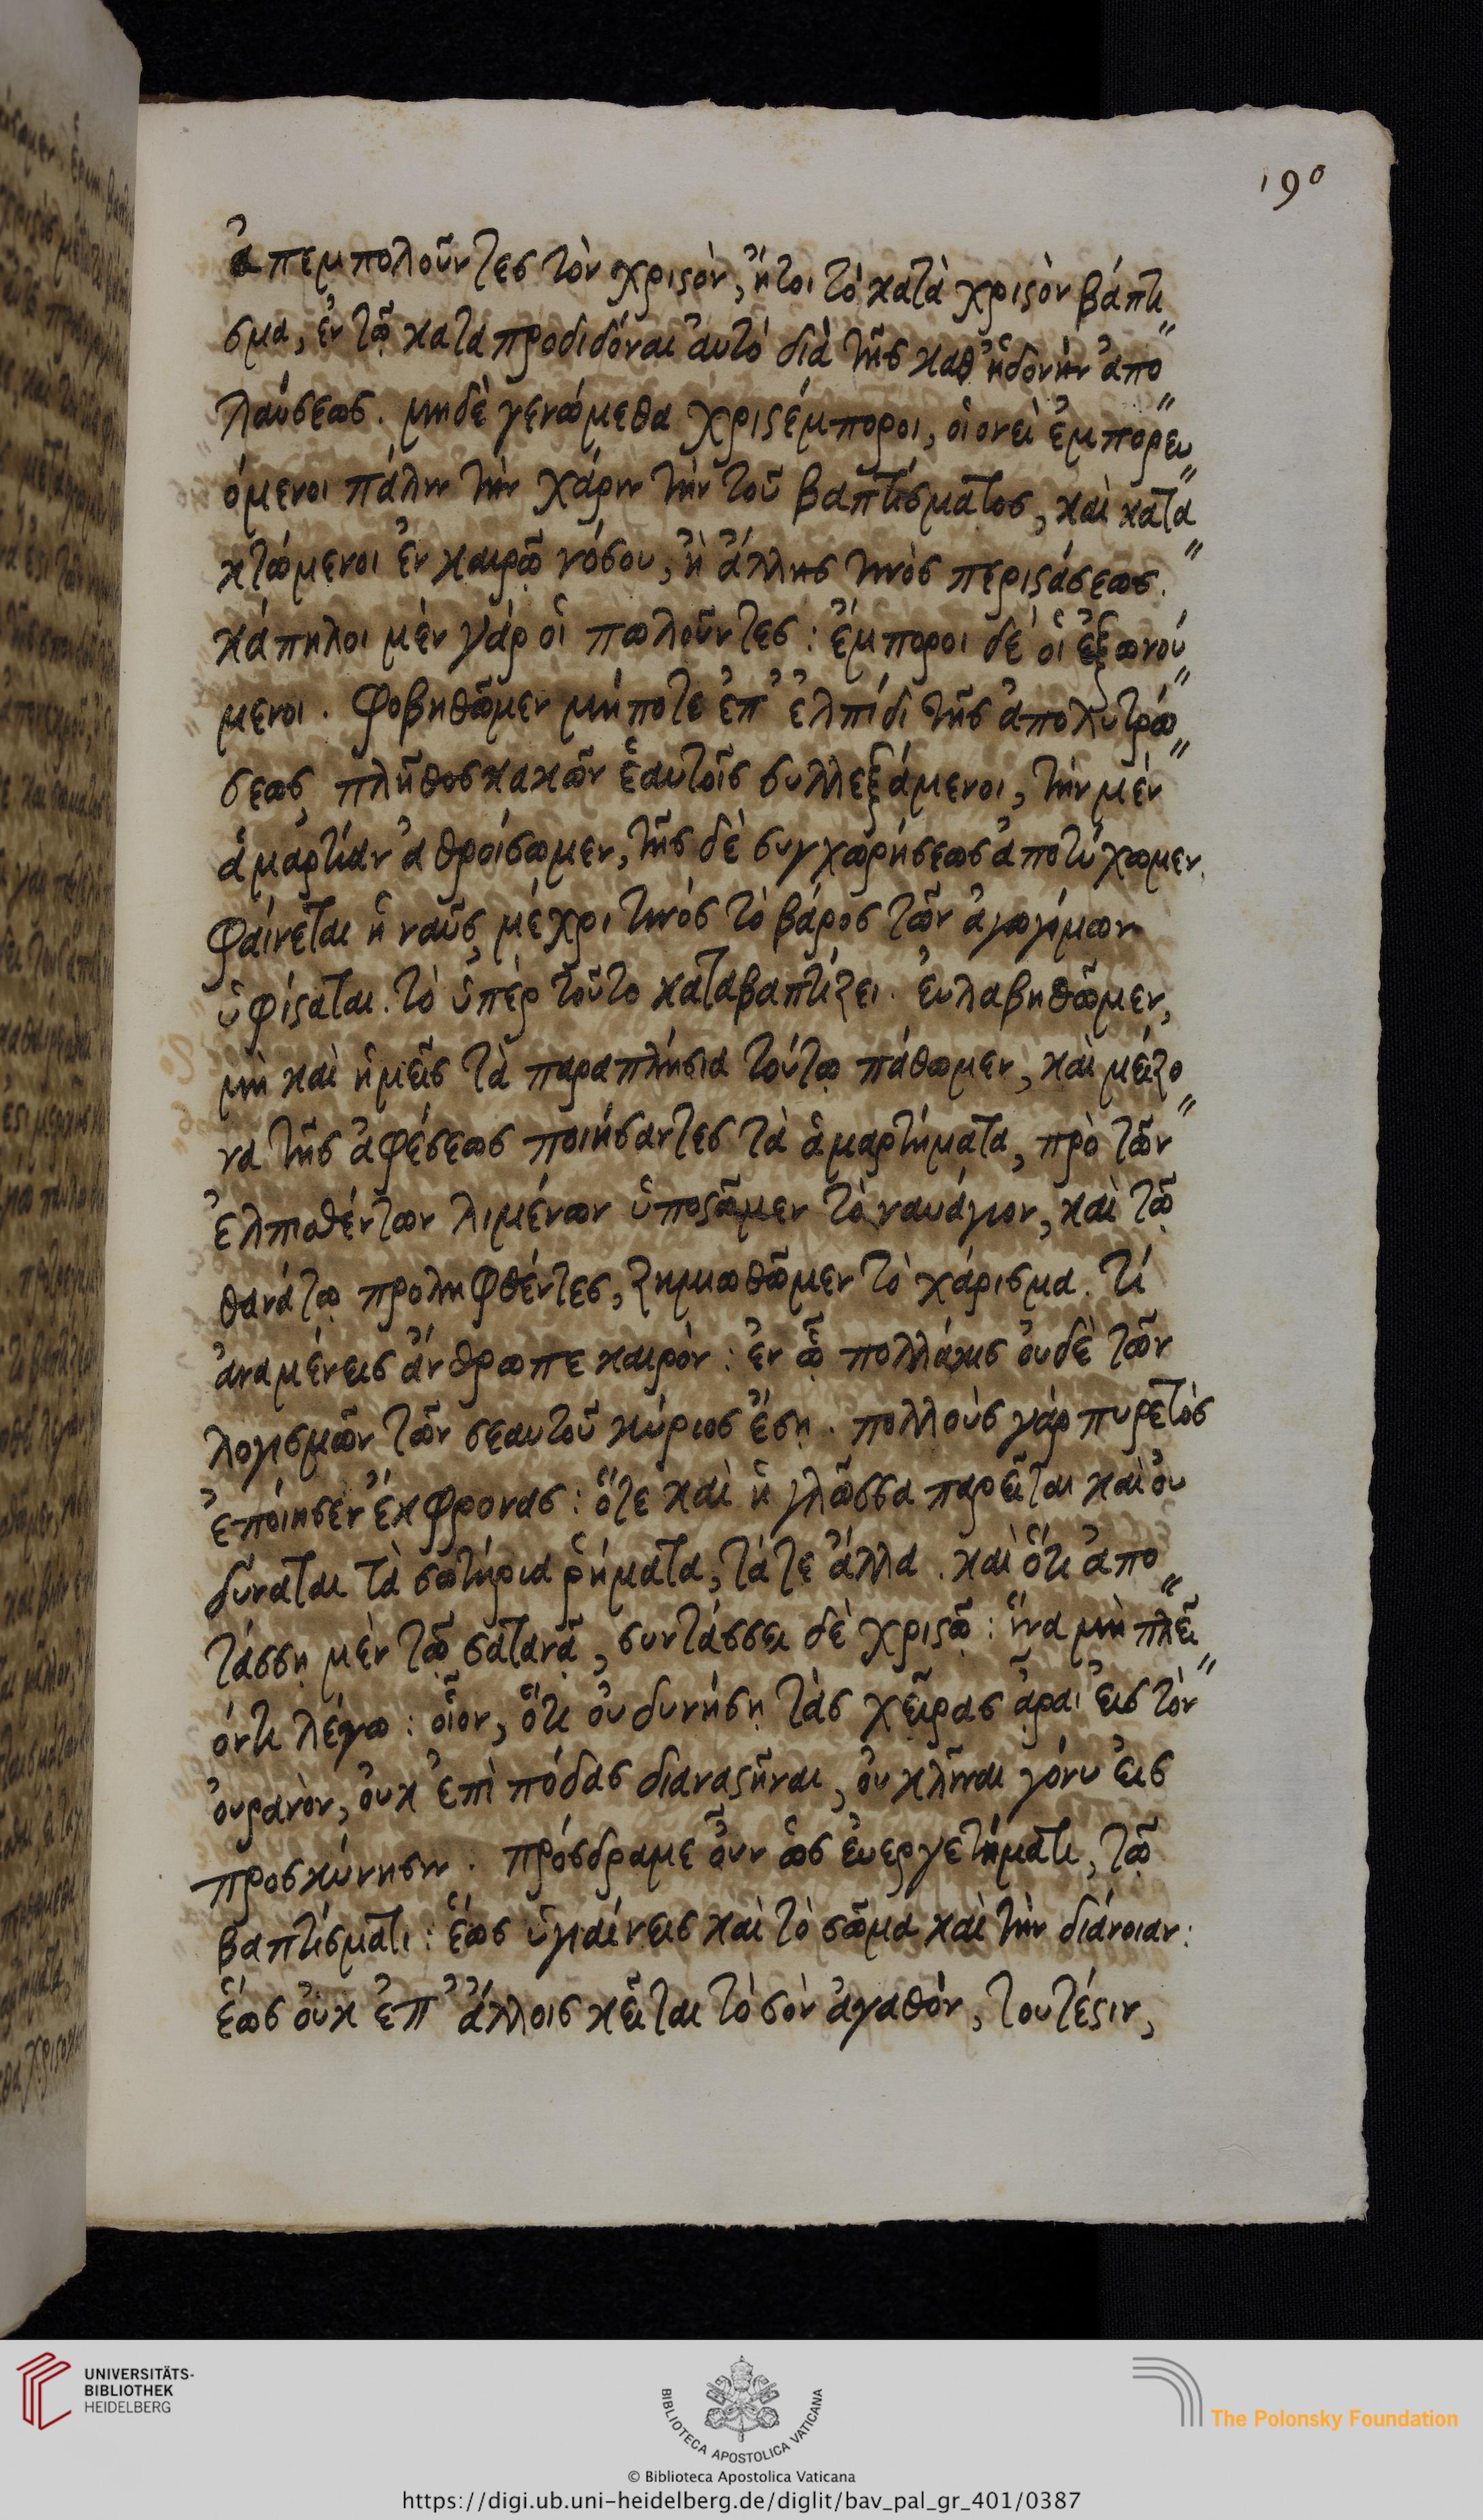 190
ἀπεμπολοῦντες τὸν χριστὸν, ἤτοι τὸ κατὰ χριστὸν βάπτι
σμα, ἐν τῷ καταπροδιδόναι ἀυτὸ διὰ τῆς καθ' ἡδονὴν ἀπο
λαύσεως. μηδὲ γενώμεθα χριστέμποροι, ὁιονεὶ ἐμπορευ
όμενοι πάλιν τὴν χάριν τὴν τοῦ βαπτίσματος, καὶ κατα
κτώμενοι ἐν καιρῷ νόσου, ἢ ἄλλης τινὸς περιστάσεως.
κάπηλοι μὲν γάρ οἱ πωλοῦντες: ἔμποροι δὲ ὁι ἐξωνού
μενοι. Φοβηθῶμεν μήποτε ἐπ' ἐλπίδι τῆς ἀπολυτρώ
σεως πλῆθος κακῶν ἑαυτοῖς συλλεξάμενοι, τὴν μὲν
ἁμαρτίαν ἀθροίσωμεν, τῆς δὲ συγχωρήσεως ἀποτύχωμεν.
Φαίνεται ἡ ναῦς μέχρι τινός τὸ βάρος τῶν ἀγωγίμων
ὑφίσταται. τὸ ὑπὲρ τοῦτο καταβαπτίζει. ἐυλαβηθῶμεν,
μὴ καὶ ἡμεῖς τὰ παραπλήσια τούτῳ πάθωμεν, καὶ μείζο
να τῆς ἀφέσεως ποιήσαντες τὰ ἁμαρτήματα, πρὸ τῶν
ἐλπισθέντων λιμένων ὑποστῶμεν τὸ ναυάγιον, καὶ τῷ
θανάτῳ προληφθέντες, ζημιωθῶμεν τὸ χάρισμα. τί
ἀναμένεις ἄνθρωπε καιρόν: ἐν ᾧ πολλάκις ὀυδὲ τῶν
λογισμῶν τῶν σεαυτοῦ κύριος ἔσῃ. πολλοὺς γάρ πυρετὸς
ἐποίησεν ἔκφρονας: ὅτε καὶ ἡ γλῶσσα παρεῖται καὶ ὀυ
δύναται τὰ σωτήρια ῥήματα, τά τε ἄλλα. καὶ ὅτι ἀπο
τάσσῃ μὲν τῷ σατανᾷ, συντάσσει δὲ χριστῷ: ἵνα μὴ πλεῖ
όντι λέγω: οἷον, ὅτι ὀυ δυνήσῃ τὰς χεῖρας ἆραι ἐις τὸν
ὀυρανὸν, ὀυκ ἐπὶ πόδας διαναστῆναι, ὀυ κλῖναι γόνυ ἐις
προσκύνησιν. πρόσδραμε ὀῦν ὡς ἐυεργετήματι, τῷ
βαπτίσματι: ἕως ὑγιαίνεις καὶ τὸ σῶμα καὶ τὴν διάνοιαν:
ἕως ὀυκ ἐπ' ἄλλοις κεῖται τὸ σὸν ἀγαθόν, τουτέστιν,
UNIVERSITÄTS-
BIBLIOTHEK
HEIDELBERG
BIBLIOTECA APOSTOLICA VATICANA
The Polonsky Foundation
© Biblioteca Apostolica Vaticana
https://digi.ub.uni-heidelberg.de/diglit/bav_pal_gr_401/0387